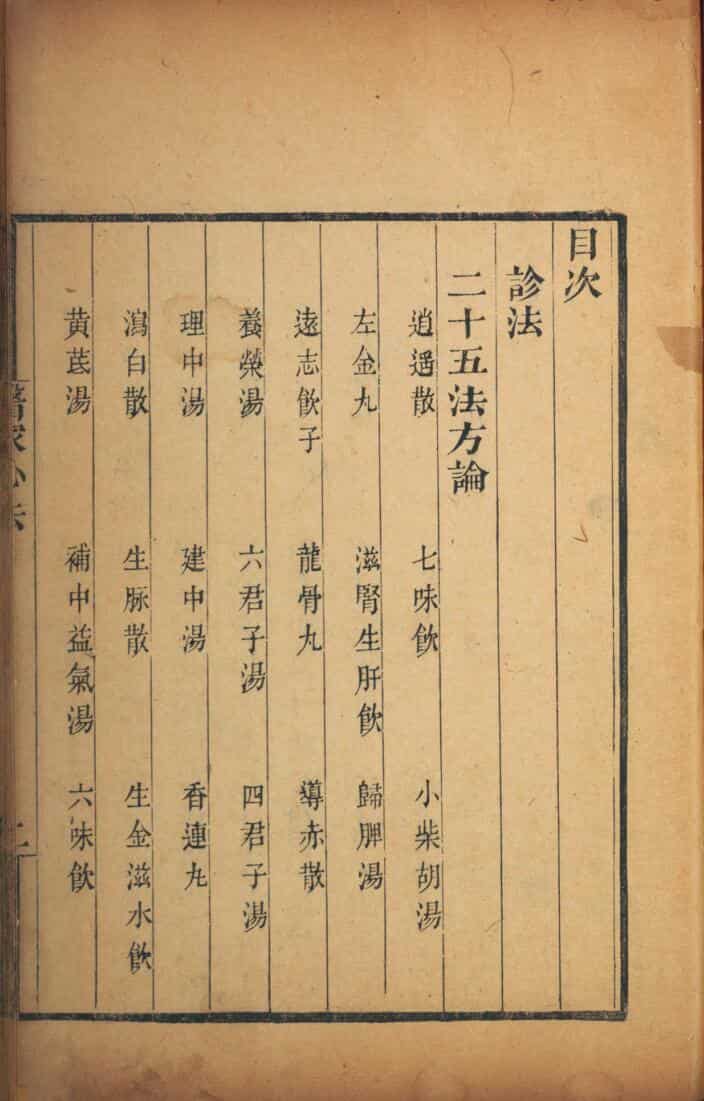 目次
診法
二十五法方論
逍遥散 七味飲 小柴胡湯
左金丸 滋腎生肝飲 歸脾湯
遠志飲子 龍骨丸 導赤散
養榮湯 六君子湯 四君子湯
理中湯 建中湯 香連丸
瀉白散 生脉散 生金滋水飲
黃芪湯 補中益氣湯 六味飲
醫家心法